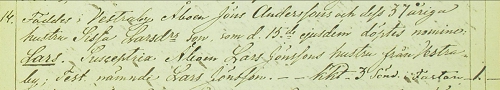 14. Föddes i Westraby Åboen Jöns Anderssons och dess 37 åriga
hustru Pola Larsdrs Son, som d. 15de ejusdem döptes nomine:
Lars. Susceptria Åboen Lars Jönssons hustru från Westra-
by; Test. nämnde Lars Jönsson. - - 3 Sönd. 1.